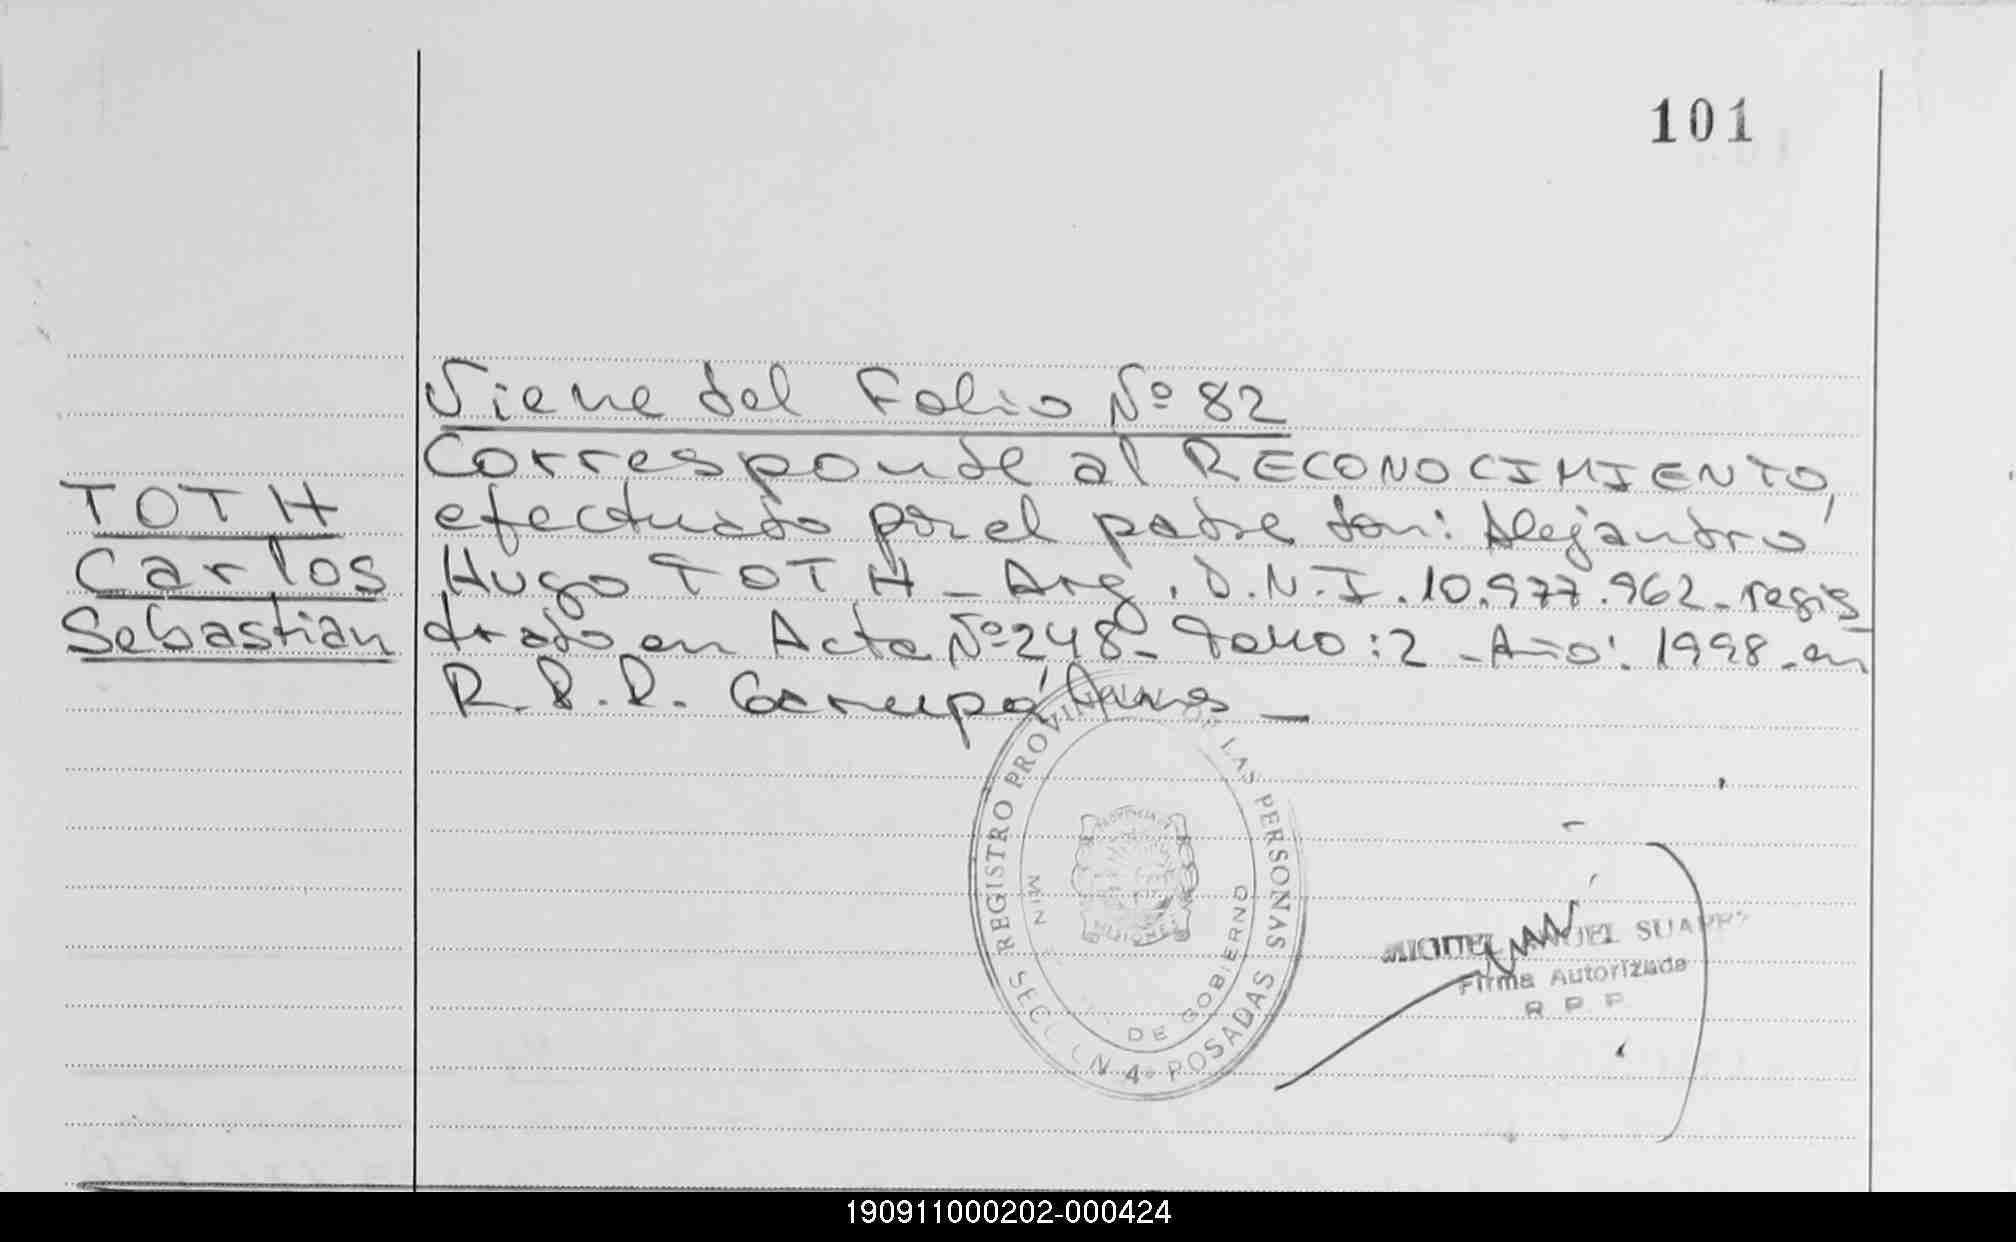 101
Viene del Folio Nº 82
Corresponde al RECONOCIMIENTO,
TOTH
efectuado por el padre don: Alejandro
Carlos
Hugo TOTH - Arg. D.N.I. 10.977.962 - regis
Sebastian
trado en Acta Nº 248 - Tomo: 2 - Año: 1998 - en
R.P.P. Garupá
REGISTRO PROVINCIAL DE LAS PERSONAS
PROVINCIA DE
MISIONES
MIN DE GOBIERNO
SECCION 4º POSADAS
MIGUEL ANGEL SUAREZ
Firma Autorizada
R P P
190911000202-000424